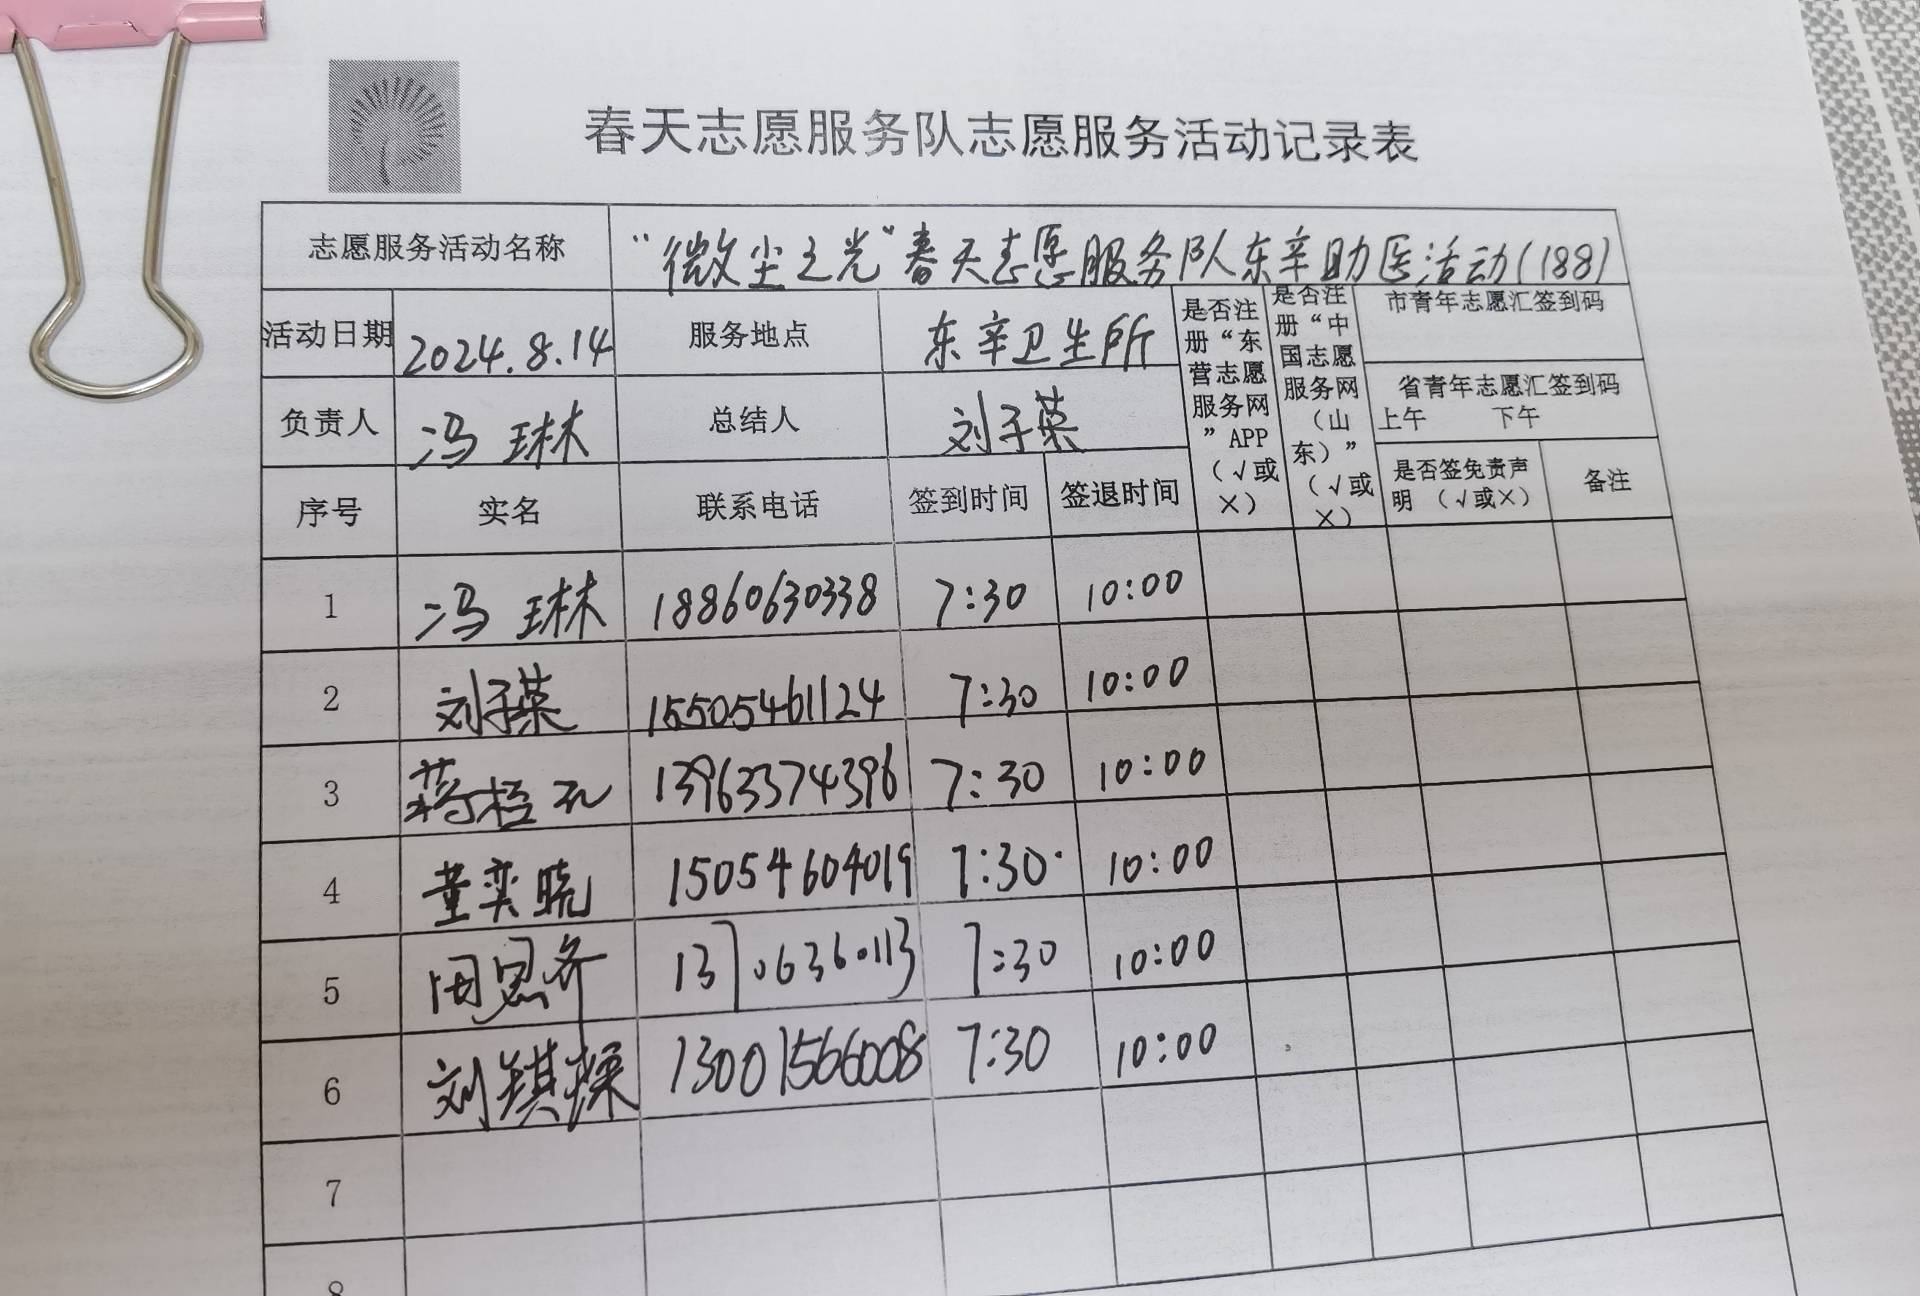 春天志愿服务队志愿服务活动记录表
志愿服务活动名称 “微尘之光”春天志愿服务队东辛助医活动(188)
活动日期 2024.8.14 服务地点 东辛卫生所 是否注册“东营志愿服务网”APP（√或×） 是否注册“中国志愿服务网（山东）”（√或×） 市青年志愿汇签到码
负责人 冯琳 总结人 刘子荣 省青年志愿汇签到码 上午 下午
序号 实名 联系电话 签到时间 签退时间 是否签免责声明（√或×） 备注
1 冯琳 18860630338 7:30 10:00
2 刘子荣 15505461124 7:30 10:00
3 蒋 13963374396 7:30 10:00
4 董奕晓 15054604019 7:30 10:00
5 周思齐 13706360113 7:30 10:00
6 刘 13001566008 7:30 10:00
7
8